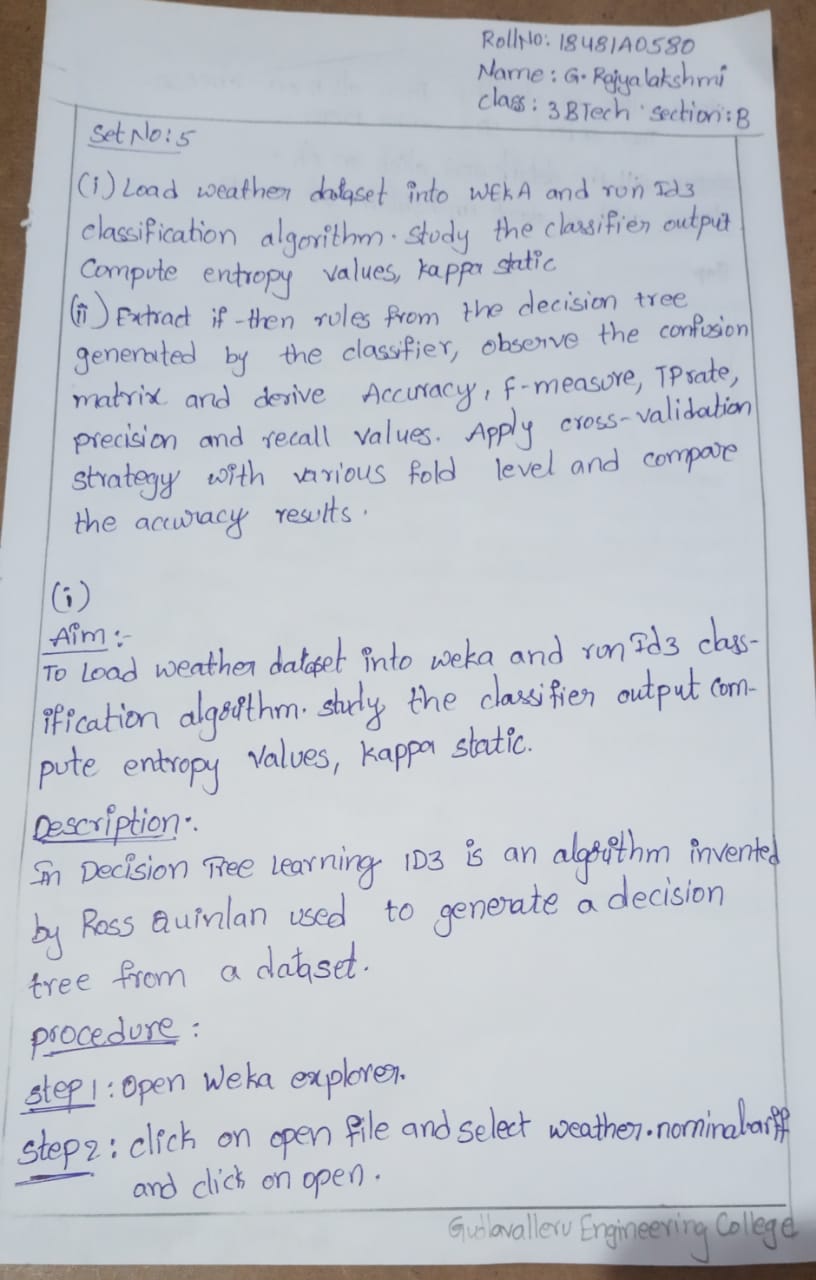 RollNo: 18481A0580
Name: G. Rajyalakshmi
class: 3 BTech section: B
Set No: 5
(i) Load weather dataset into WEKA and run Id3
classification algorithm. Study the classifier output
Compute entropy values, kappa static
(ii) Extract if-then rules from the decision tree
generated by the classifier, observe the confusion
matrix and derive Accuracy, F-measure, TPrate,
precision and recall values. Apply cross-validation
strategy with various fold level and compare
the accuracy results.
(i)
Aim:-
To Load weather dataset into weka and run Id3 class-
ification algorithm. study the classifier output com-
pute entropy values, kappa static.
Description:.
In Decision Tree learning ID3 is an algorithm invented
by Ross Quinlan used to generate a decision
tree from a dataset.
procedure:
step1: open Weka explorer.
step2: click on open file and select weather.nominal.arff
and click on open.
Gudlavalleru Engineering College